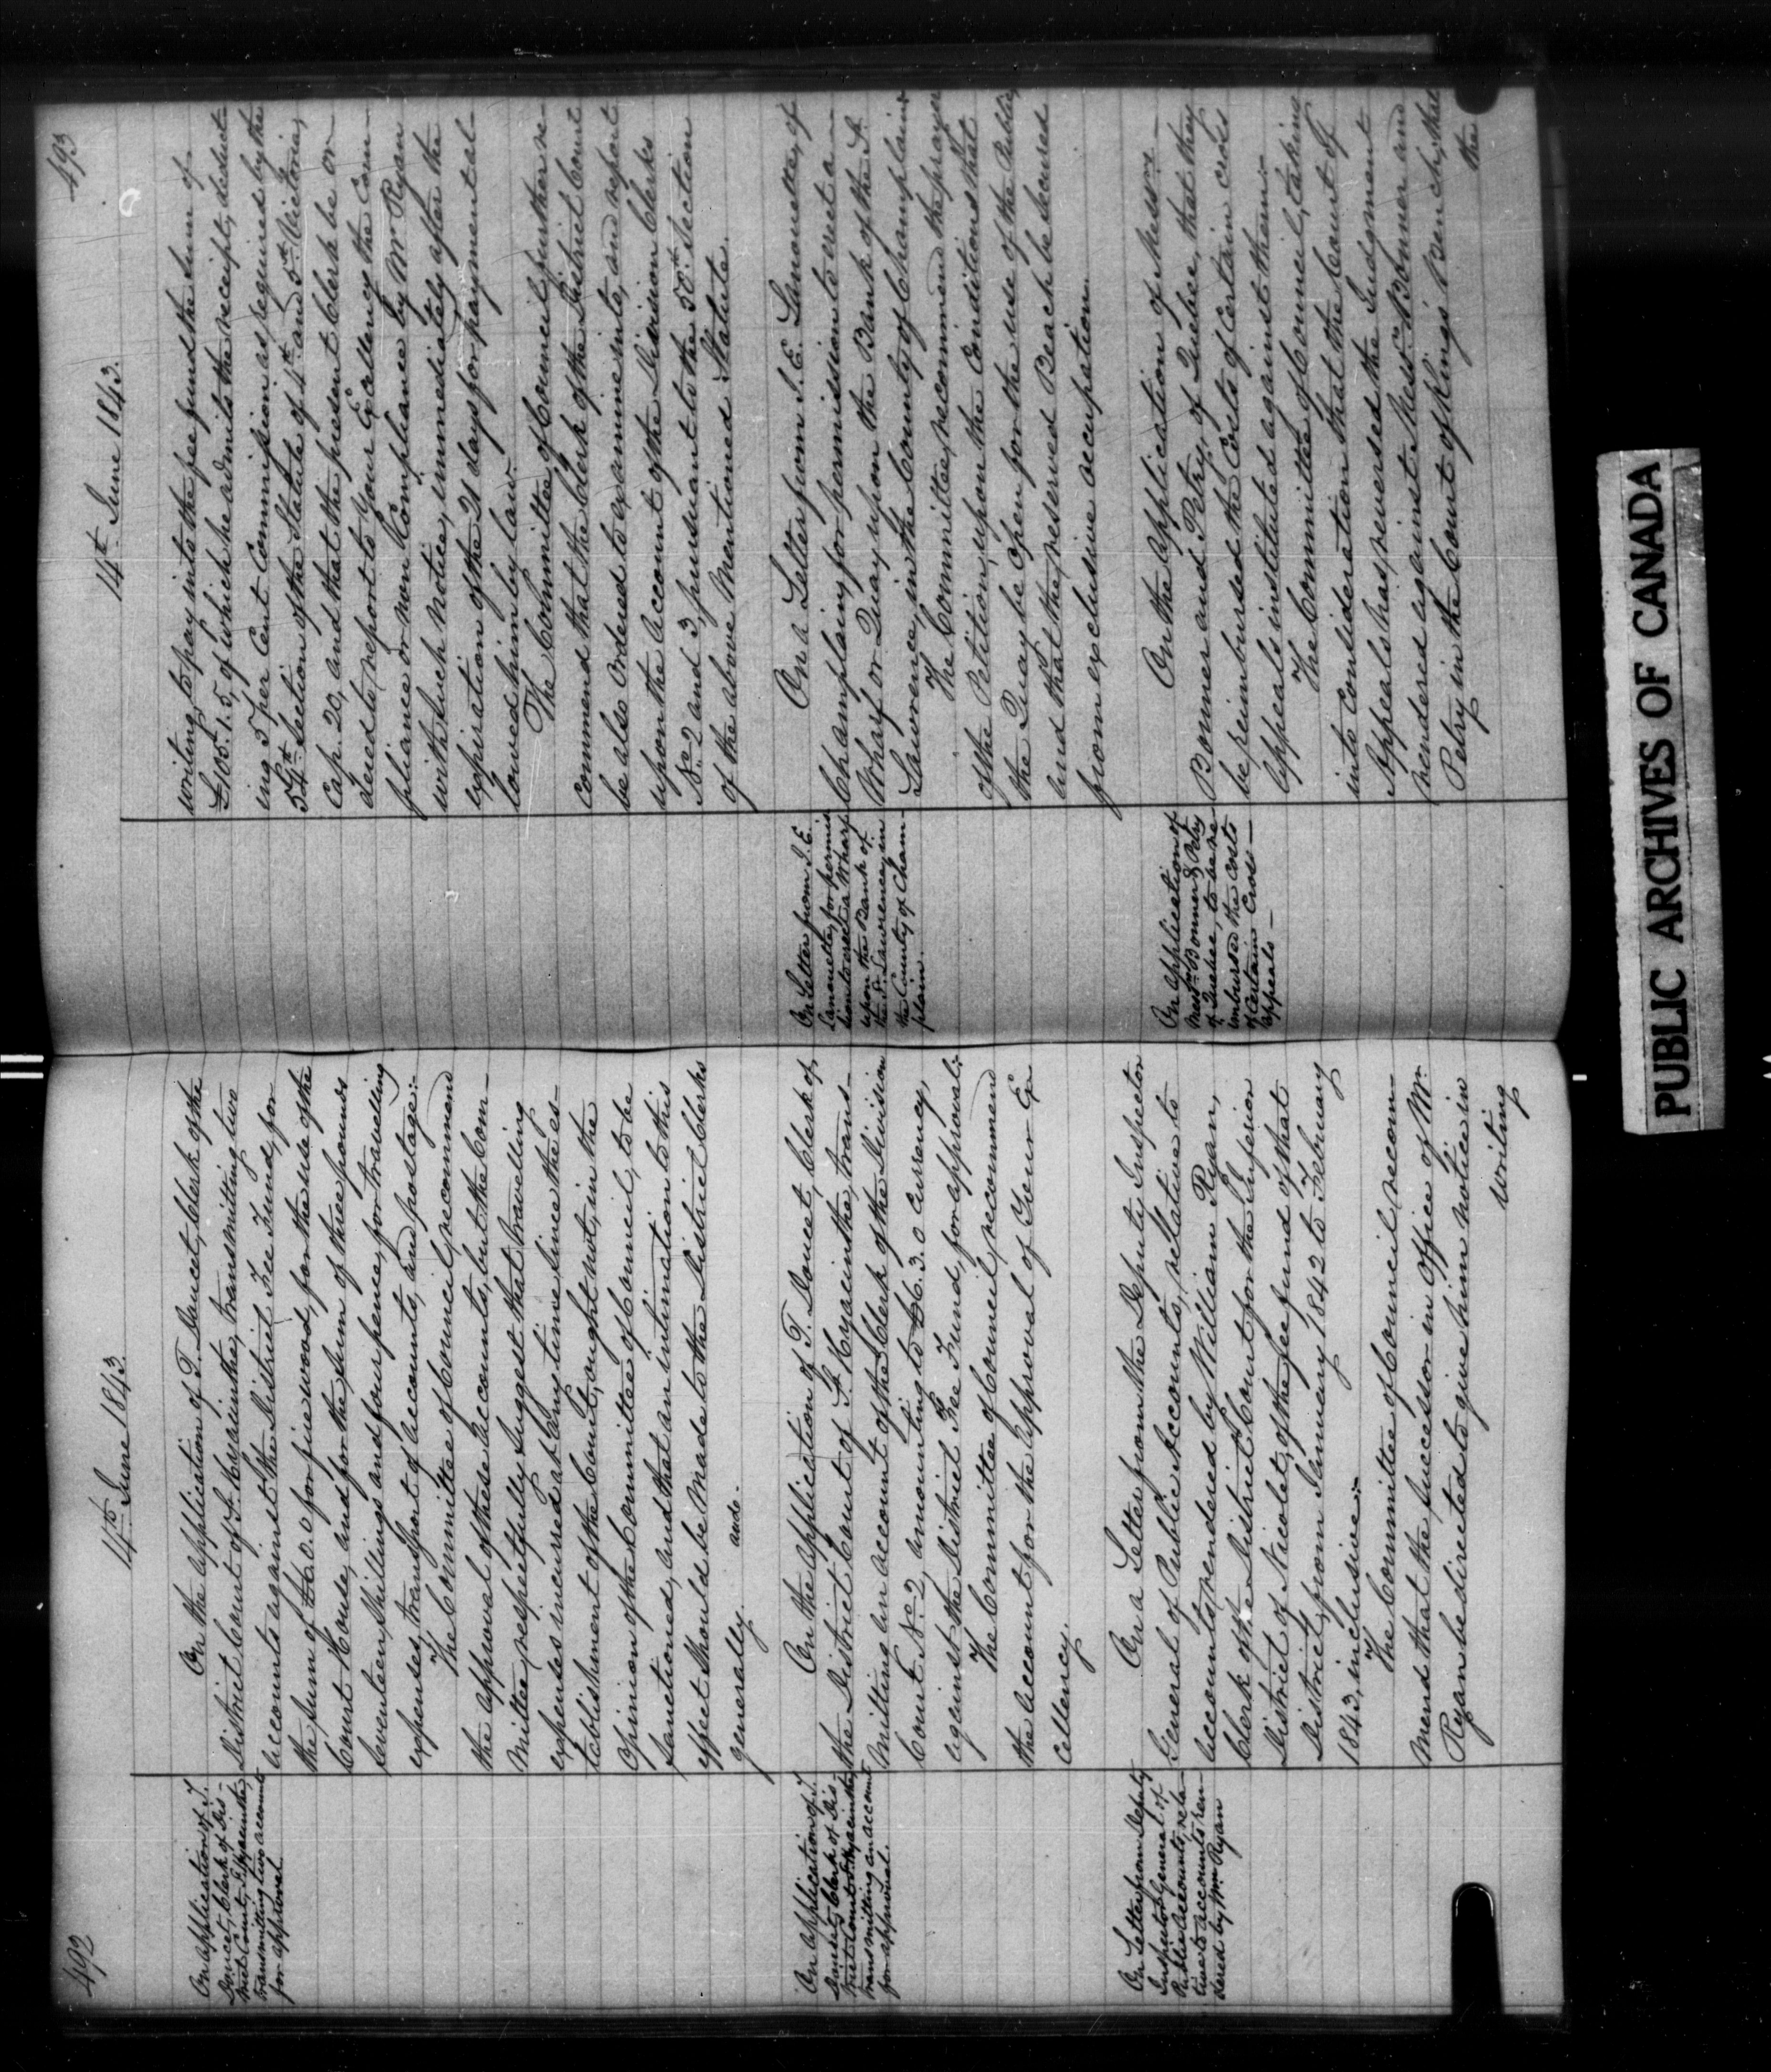 492
14th June 1843.
On application of T.
Doucet, Clerk of Dis-
trict Court, St Hyacinthe,
transmitting two accounts
for approval.
On the application of T. Doucet, Clerk of the
District Court of St. Hyacinthe, transmitting two
accounts against the District Fee Fund, for
the sum of £6.0.0 for fire wood, for the use of the
Court House, and for the sum of three pounds
seventeen shillings and four pence, for travelling
expenses, transport of accounts, and postage:-
The Committee of Council, recommend
the approval of these accounts, but the Com-
mittee, respectfully suggest that travelling
expenses incurred at any time since the es-
tablishment of the Court, ought not, in the
opinion of the Committee of Council, to be
sanctioned, and that an intimation to this
effect should be made to the District Clerks
generally. aud.
On application of T.
Doucet, Clerk of Dis-
trict Court St. Hyacinthe,
transmitting an account
for approval.
On the application of T. Doucet, Clerk of
the District Court of St. Hyacinthe, trans-
mitting an account of the Clerk of the Division
Court No 2, amounting to £6.3.0 Currency,
against the District Fee Fund, for approval:-
The Committee of Council, recommend
the account for the approval of Your Ex-
cellency.
On Letter from Deputy
Inspector General of
Public Accounts, rela-
tive to accounts ren-
dered by Wm Ryan
On a Letter from the Deputy Inspector
General of Public Accounts, relative to
accounts, rendered by William Ryan,
Clerk of the District Court for the Inferior
District of Nicolet, of the fee fund of that
District, from January 1842 to February
1843, inclusive:-
The Committee of Council, recom-
mend that the Successor in Office of Mr.
Ryan be directed to give him notice in
writing
493
14th June 1843.
writing, to pay into the fee fund the sum of
£105.1.5, of which he admits the receipt, deduct-
ing 5 per Cent Commission as required by the
54th Section of the Statute of 4th and 5th Victoria,
Cap. 20, and that the present Clerk be or-
dered to report to Your Excellency the Com-
pliance or non Compliance by Mr Ryan
with such notice, immediately after the
expiration of the 21 days for payment al-
lowed him by law.
The Committee of Council, further re-
commend that the Clerk of the District Court
be also ordered to examine into, and report
upon the Account of the Division Clerks
No 2 and 3, pursuant to the 50th Section
of the above mentioned Statute.
On Letter from I. E.
Lanouette, for permis-
sion to erect a Wharf
upon the Bank of
the St. Lawrence, in
the County of Cham-
plain.
On a Letter from I. E. Lanouette, of
Champlain, for permission to erect a
Wharf or Quay upon the Bank of the St.
Lawrence, in the County of Champlain:-
The Committee, recommend the prayer
of the Petition, upon the Conditions that
the Quay be open for the use of the Public,
and that the reserved Beach be secured
from exclusive occupation.
On application of
Messrs Bonner & Petry
of Quebec, to be re-
imbursed the Costs
of Certain Cross
appeals -
On the application of Messrs
Bonner and Petry, of Quebec, that they
be reimbursed the Costs of Certain Cross
Appeals instituted against them:-
The Committee of Council, taking
into Consideration that the Court of
Appeals has reversed the Judgment
rendered against Messrs Bonner and
Petry in the Court of King's Bench, that
the
PUBLIC ARCHIVES OF CANADA